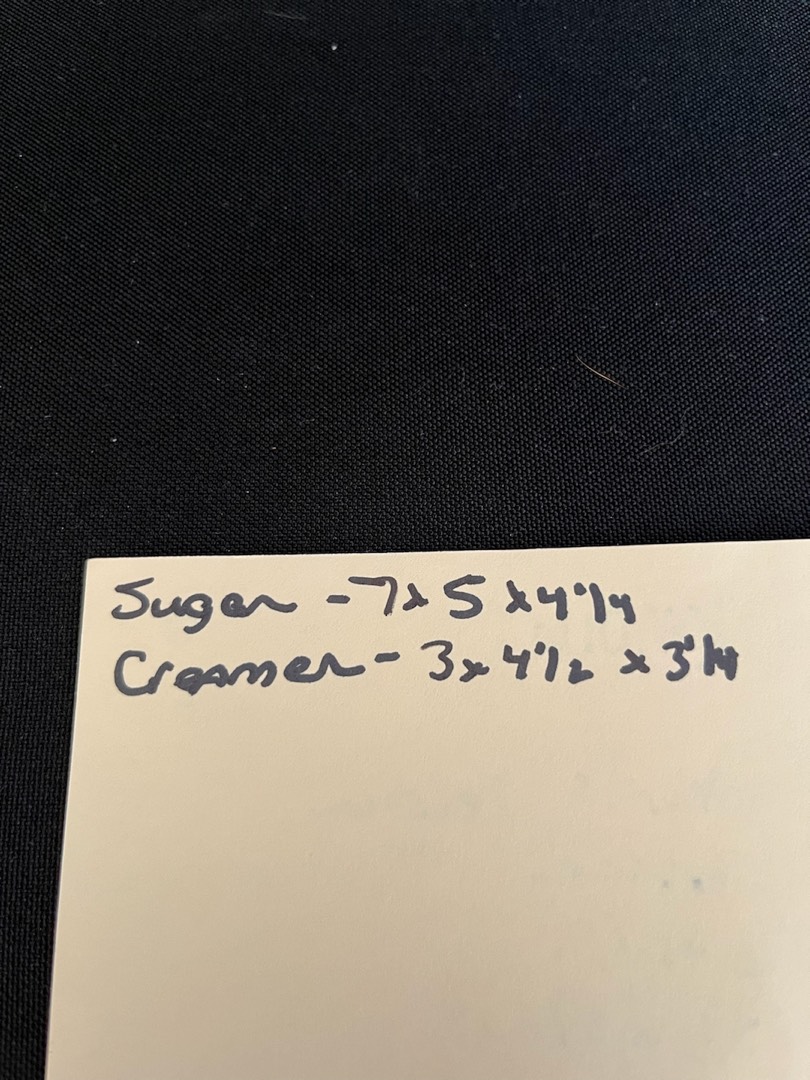 Sugar - 7 x 5 x 4 1/4
Creamer - 3 x 4 1/2 x 3 1/4